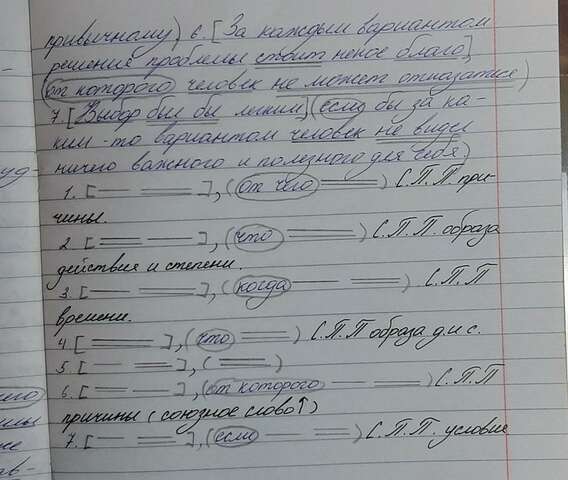 привычному) 6. [За каждым вариантом
решения проблемы стоит некое благо],
(от которого человек не может отказаться)
7. [Выбор был бы легким], (если бы за ка-
ким-то вариантом человек не видел
ничего важного и полезного для себя)
1. [— ══], (от чего ══) С.П.П. при-
чины.
2. [══ —], (что ══) С.П.П. образа
действия и степени.
3. [— ══], (когда — ══) С.П.П
времени.
4. [══], (что ══) С.П.П образа д.и с.
5. [— ══], (══)
6. [— —], (от которого — ══) С.П.П
причины (союзное слово↑)
7. [— ══], (если — ══) С.П.П. условие